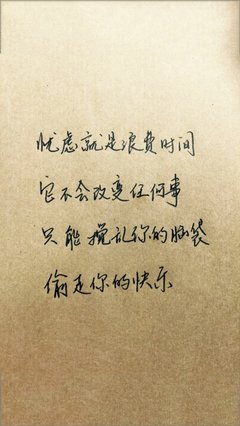 忧虑就是浪费时间
它不会改变任何事
只能搅乱你的脑袋
偷走你的快乐